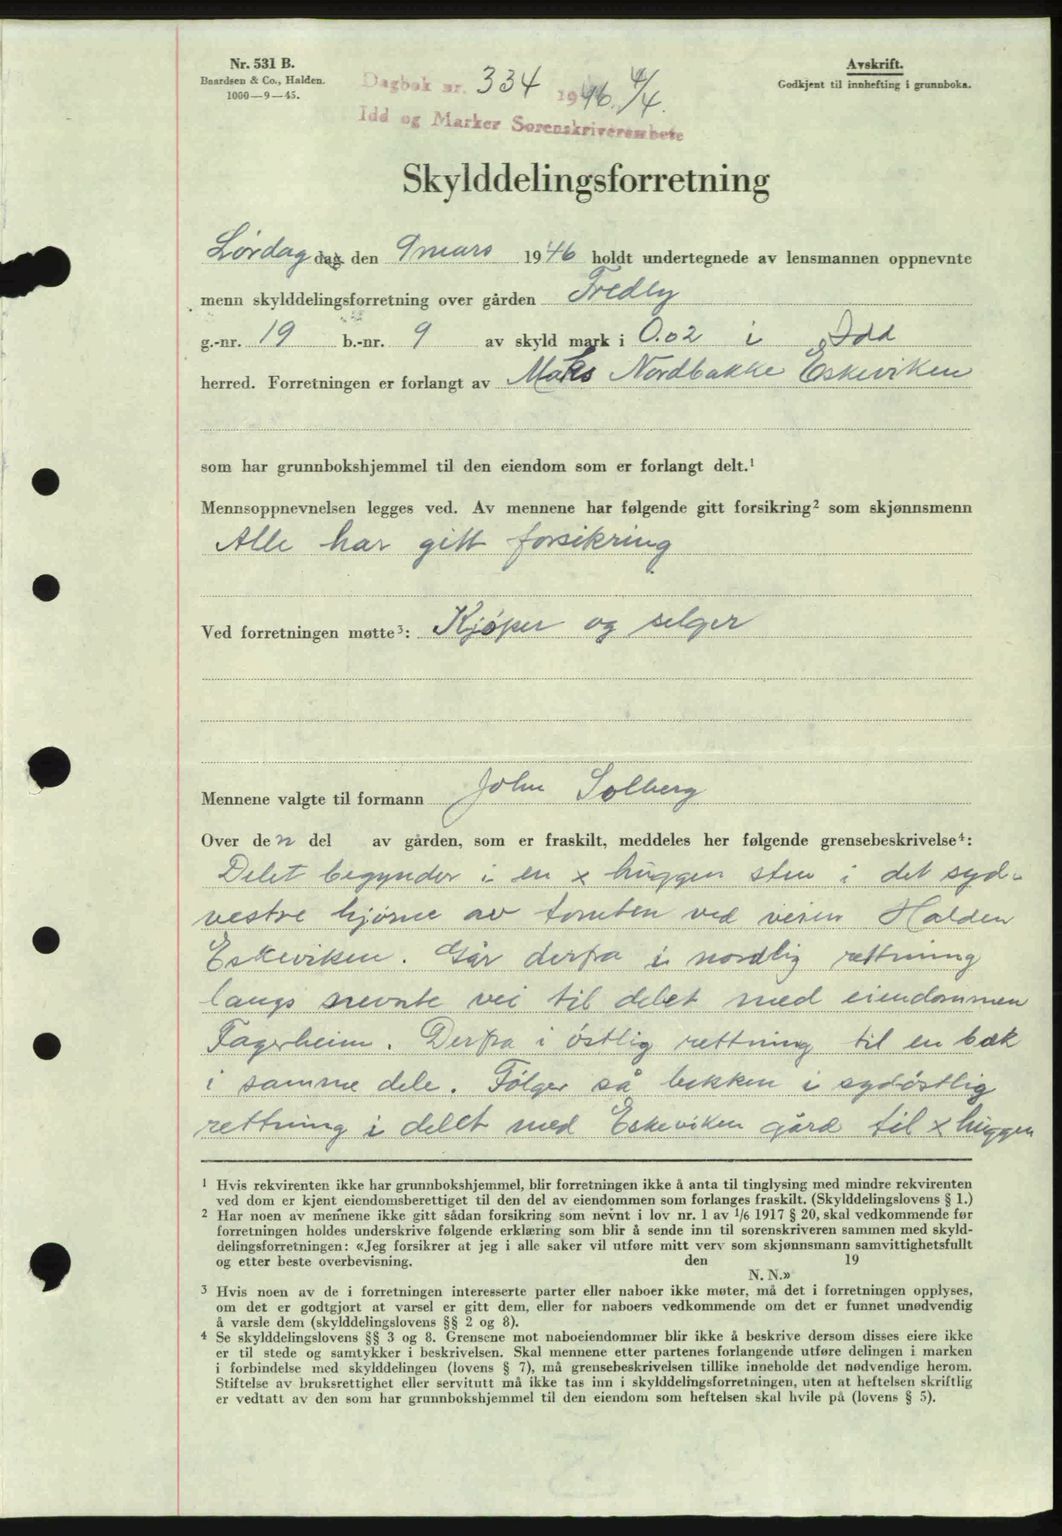 Nr. 531 B.
Baardsen & Co., Halden.
1000—9—45.
Avskrift.
Godkjent til innhefting i grunnboka.
Dagbok nr. 334 1946 4/4.
Idd og Marker Sorenskriverembete
Skylddelingsforretning
Lørdag dag den 9 mars 1946 holdt undertegnede av lensmannen oppnevnte
menn skylddelingsforretning over gården Fredly
g.-nr. 19 b.-nr. 9 av skyld mark i 0.02 i Idd
herred. Forretningen er forlangt av Maks Nordbakke Eskeviken
som har grunnbokshjemmel til den eiendom som er forlangt delt.¹
Mennsoppnevnelsen legges ved. Av mennene har følgende gitt forsikring² som skjønnsmenn
Alle har gitt forsikring
Ved forretningen møtte³: Kjøper og selger
Mennene valgte til formann John Solberg
Over den del av gården, som er fraskilt, meddeles her følgende grensebeskrivelse⁴:
Delet begynder i en x huggen sten i det syd-
vestre hjørne av tomten ved veien Halden
Eskeviken. Går derfra i nordlig rettning
langs nevnte vei til delet med eiendommen
Fagerheim. Derfra i østlig rettning til en bæk
i samme dele. Følger så bekken i sydøstlig
rettning i delet med Eskeviken gård til x huggen
¹ Hvis rekvirenten ikke har grunnbokshjemmel, blir forretningen ikke å anta til tinglysing med mindre rekvirenten
ved dom er kjent eiendomsberettiget til den del av eiendommen som forlanges fraskilt. (Skylddelingslovens § 1.)
² Har noen av mennene ikke gitt sådan forsikring som nevnt i lov nr. 1 av 1/6 1917 § 20, skal vedkommende før
forretningen holdes underskrive følgende erklæring som blir å sende inn til sorenskriveren sammen med skyld-
delingsforretningen: «Jeg forsikrer at jeg i alle saker vil utføre mitt verv som skjønnsmann samvittighetsfullt
og etter beste overbevisning. den 19
N. N.»
³ Hvis noen av de i forretningen interesserte parter eller naboer ikke møter, må det i forretningen opplyses,
om det er godtgjort at varsel er gitt dem, eller for naboers vedkommende om det er funnet unødvendig
å varsle dem (skylddelingslovens §§ 2 og 8).
⁴ Se skylddelingslovens §§ 3 og 8. Grensene mot naboeiendommer blir ikke å beskrive dersom disses eiere ikke
er til stede og samtykker i beskrivelsen. Skal mennene etter partenes forlangende utføre delingen i marken
i forbindelse med skylddelingen (lovens § 7), må grensebeskrivelsen tillike inneholde det nødvendige herom.
Stiftelse av bruksrettighet eller servitutt må ikke tas inn i skylddelingsforretningen, uten at heftelsen skriftlig
er vedtatt av den som har grunnbokshjemmel til den eiendom som heftelsen skal hvile på (lovens § 5).